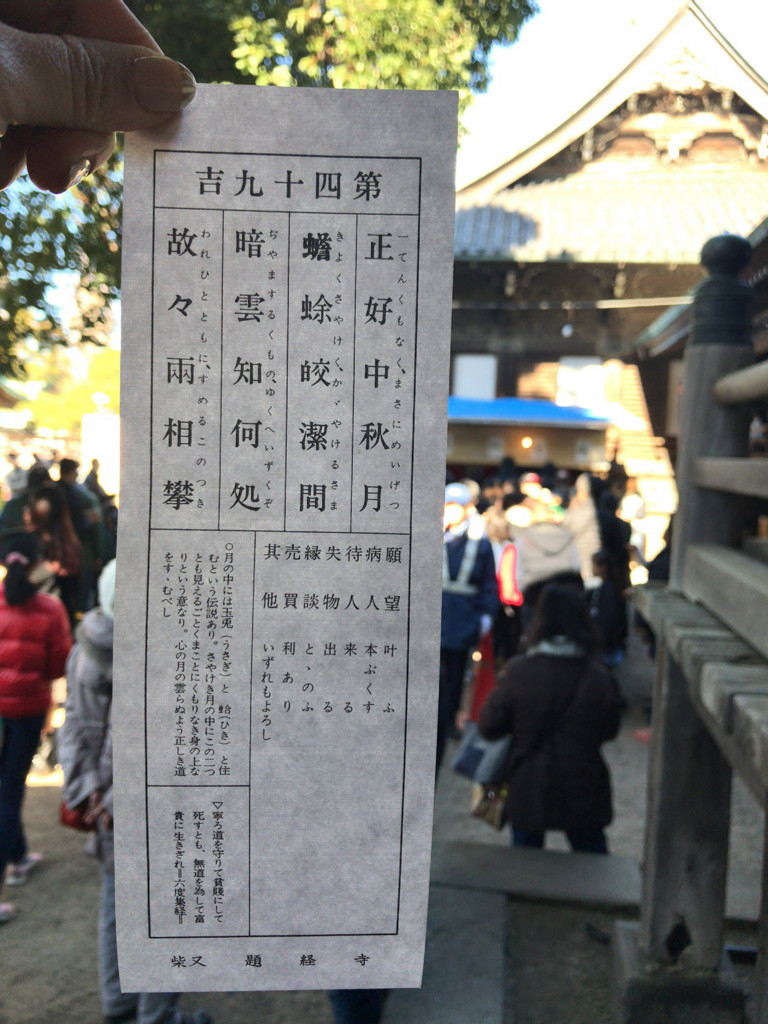 第四十九吉
正好中秋月
一てんくもなく、まさにめいげつ
蟾蜍皎潔間
きよくさやけく、かゞやけるさま
暗雲知何処
おやまするくもの、ゆくへいずくぞ
故々兩相攀
われひとともに、すめるこのつき
願望 叶ふ
病人 本ぶくす
待人 来る
失物 出る
縁談 とゝのふ
売買 利あり
其他 いずれもよろし
○月の中には玉兎(うさぎ)と 蛤(ひき)と住
むという伝説あり。さやけき月の中にこの二つ
とも見えるごとくまことにくもりなき身の上な
りという意なり。心の月の雲らぬよう正しき道
をすゝむべし
▽寧ろ道を守りて貧賤にして
死すとも、無道を為して富
貴に生きざれ=六度集経=
柴又 題経寺